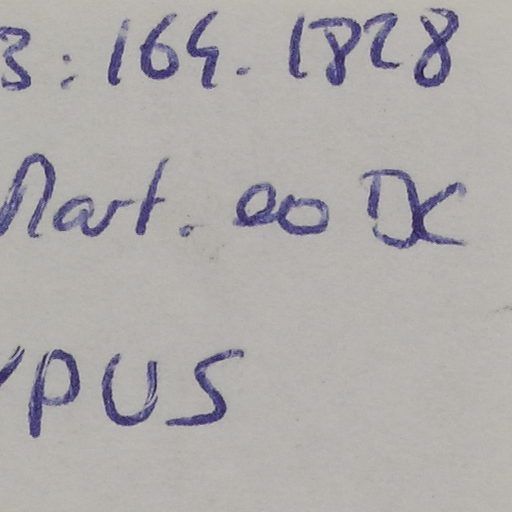 3:164.1828
Mart. ex DC
YPUS